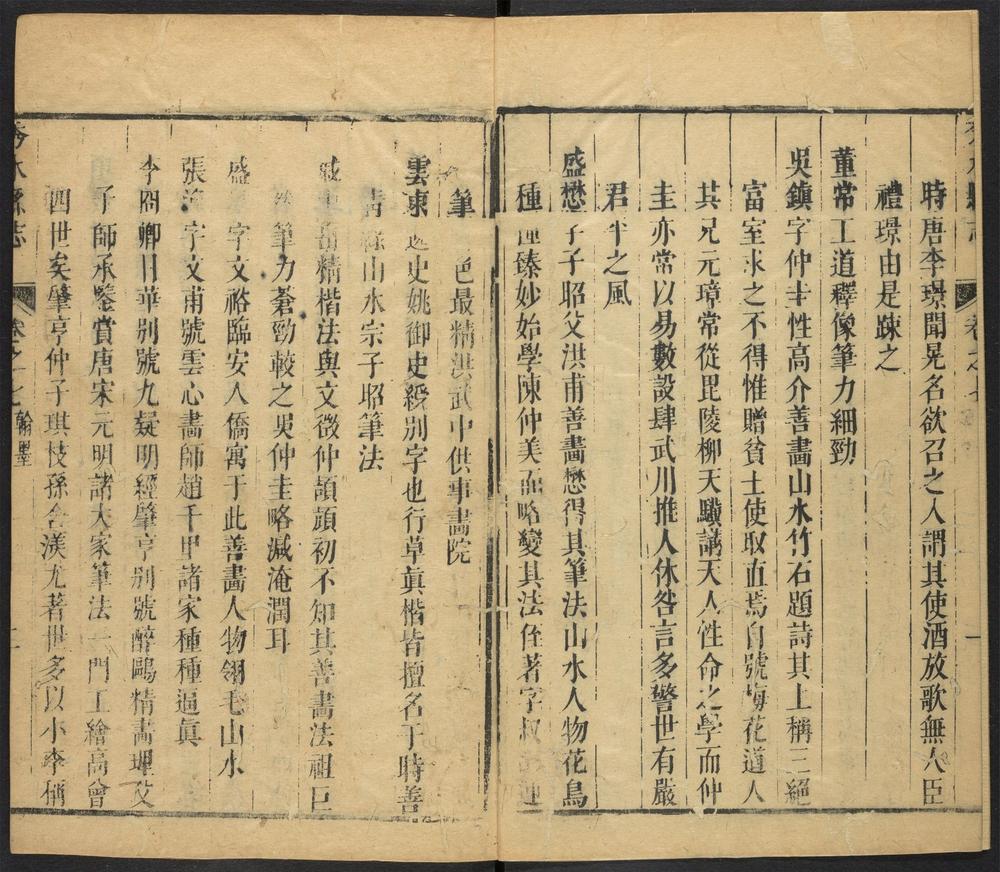 時唐李璟聞晃名欲召之入謂其使酒放歌無人臣
禮璟由是踈之
董常工道釋像筆力細勁
吳鎮字仲圭性高介善畫山水竹石題詩其上稱三絕
富室求之不得惟贈貧士使取直焉自號梅花道人
其兄元璋常從毘陵柳天驥講天人性命之學而仲
圭亦常以易數設肆武川推人休咎言多警世有嚴
君平之風
盛懋字子昭父洪甫善畫懋得其筆法山水人物花鳥
種種臻妙始學陳仲美而略變其法侄著字叔
筆 色最精洪武中供事畫院
雲東逸史姚御史綬別字也行草眞楷皆擅名于時善
山水宗子昭筆法
精楷法與文徵仲頡頏初不知其善畫法祖巨
然筆力蒼勁較之吳仲圭略減淹潤耳
盛 字文裕臨安人僑寓于此善畫人物翎毛山水
張 字文甫號雲心畵師趙千里諸家種種逼眞
李 卿日華別號九疑明經肇亨別號醉鷗精畵理父
子師承鑒賞唐宋元明諸大家筆法一門工繪高會
四世矣肇亨仲子琪枝孫含渼尤著世多以小李稱
秀水縣志 卷之七 翰墨 二